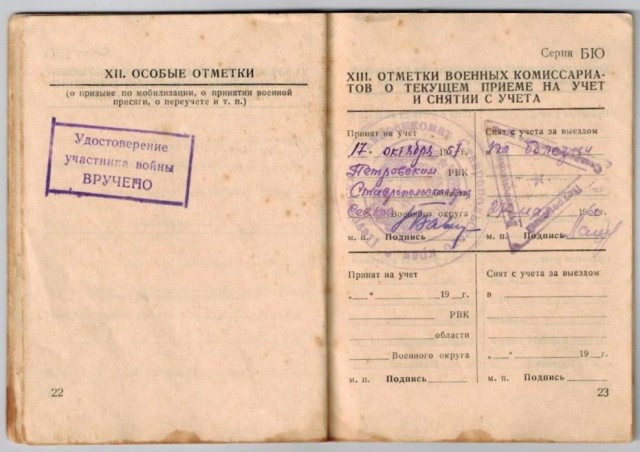 XII. ОСОБЫЕ ОТМЕТКИ
(о призыве по мобилизации, о принятии военной
присяги, о переучете и т. п.)
Удостоверение
участника войны
ВРУЧЕНО
22
Серия БЮ
XIII. ОТМЕТКИ ВОЕННЫХ КОМИССАРИА-
ТОВ О ТЕКУЩЕМ ПРИЕМЕ НА УЧЕТ
И СНЯТИИ С УЧЕТА
Принят на учет
17. октября 1957г.
Петровским РВК
Ставропольского
Военного округа
м. п. Подпись
Снят с учета за выездом
по болезни
27 мая 1960г.
м. п. Подпись
Принят на учет
„ “ 19 г.
РВК
области
Военного округа
м. п. Подпись
Снят с учета за выездом
в
„ “ 19 г.
м. п. Подпись
23